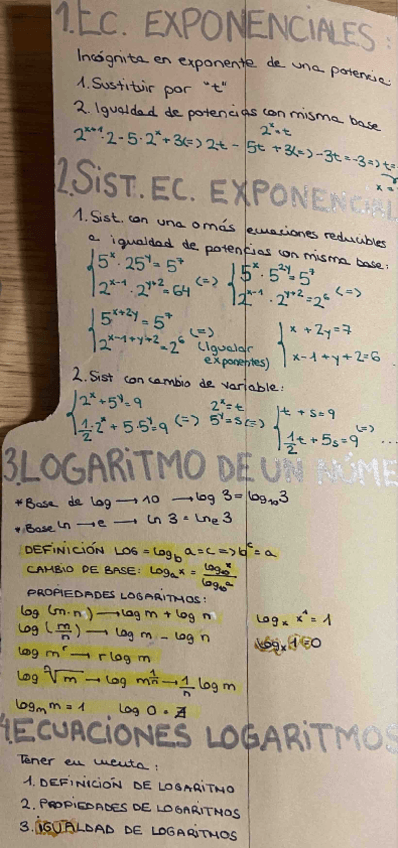 1. EC. EXPONENCIALES:
Incógnita en exponente de una potencia:
1. Sustituir por "t"
2. Igualdad de potencias con misma base
2ˣ=t
2ˣ⁺¹·2-5·2ˣ+3(=) 2t - 5t + 3(=)-3t=-3=) t=
x =
2. SIST. EC. EXPONENCIAL
1. Sist. con una o más ecuaciones reducibles
a igualdad de potencias con misma base:
{5ˣ · 25ʸ = 5⁷ {5ˣ · 5²ʸ = 5⁷
{2ˣ⁻¹ · 2ʸ⁺² = 64 (=) {2ˣ⁻¹ · 2ʸ⁺² = 2⁶ (=)
{5ˣ⁺²ʸ = 5⁷ (=) {x + 2y = 7
{2ˣ⁻¹⁺ʸ⁺² = 2⁶ (Igualar exponentes) {x-1+y+2=6
2. Sist con cambio de variable:
{2ˣ + 5ʸ = 9 2ˣ=t {t + s = 9
{1/2 · 2ˣ + 5·5ʸ = 9 (=) 5ʸ=s (=) {1/2 t + 5s = 9 (=) ...
3. LOGARITMO DE UN NÚME
* Base de log → 10 → log 3 = log₁₀ 3
* Base ln → e → ln 3 = lnₑ 3
DEFINICIÓN LOG = log_b a = c => bᶜ = a
CAMBIO DE BASE: logₐ x = log₁₀ x / log₁₀ a
PROPIEDADES LOGARITMOS:
log (m·n) → log m + log n
logₓ x¹ = 1
log (m/n) → log m - log n
logₓ 1 = 0
log mʳ → r log m
log ⁿ√m → log m^(1/n) → 1/n log m
logₘ m = 1 log 0 = ∄
4. ECUACIONES LOGARITMOS
Tener en cuenta:
1. DEFINICIÓN DE LOGARITMO
2. PROPIEDADES DE LOGARITMOS
3. IGUALDAD DE LOGARITMOS